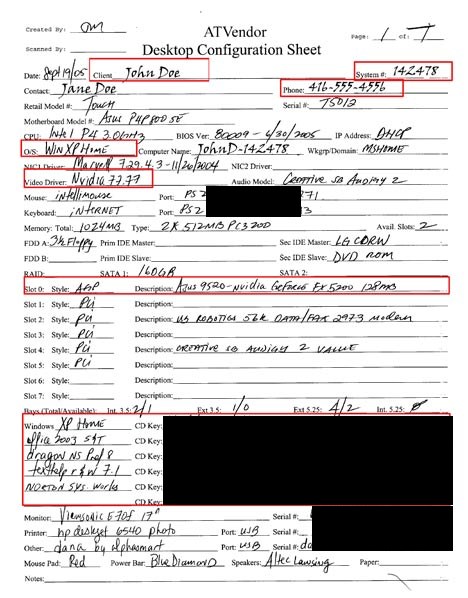 Created By: JM ATVendor Page: 1 of 7
Scanned By: Desktop Configuration Sheet
Date: Sept 19/05 Client John Doe System #: 142478
Contact: Jane Doe Phone: 416-555-4556
Retail Model #: Touch Serial #: 75012
Motherboard Model #: Asus P4P800SE
CPU: Intel P4 3.0GHz BIOS Ver: 80009 - 4/30/2005 IP Address: DHCP
O/S: WIN XP HOME Computer Name: JohnD-142478 Wkgrp/Domain: MSHOME
NIC1 Driver: Marvell 7.29.4.3 - 11/26/2004 NIC2 Driver:
Video Driver: Nvidia 77.77 Audio Model: CREATIVE SB AUDIGY 2
Mouse: intellimouse Port: PS2 271
Keyboard: iNTERNET Port: PS2 3
Memory: Total: 1024MB Type: 2X 512MB PC3200 Avail. Slots: 2
FDD A: 3½ Floppy Prim IDE Master: Sec IDE Master: LG CDRW
FDD B: Prim IDE Slave: Sec IDE Slave: DVD ROM
RAID: SATA 1: 160GB SATA 2:
Slot 0: Style: AGP Description: Asus 9520-Nvidia GeForce FX5200 128MB
Slot 1: Style: PCi Description:
Slot 2: Style: PCi Description: US ROBOTICS 56K DATA/FAX 2973 modem
Slot 3: Style: PCi Description:
Slot 4: Style: PCi Description: CREATIVE SB AUDIGY 2 VALUE
Slot 5: Style: PCi Description:
Slot 6: Style: Description:
Slot 7: Style: Description:
Bays (Total/Available): Int. 3.5: 2/1 Ext 3.5: 1/0 Ext 5.25: 4/2 Int. 5.25: 0
Windows XP HOME CD Key:
office 2003 S&T CD Key:
dragon NS Pref 8 CD Key:
texthelp r & w 7.1 CD Key:
NORTON SYS. works CD Key:
CD Key:
Monitor: Viewsonic E70f 17" Serial #:
Printer: hp deskjet 6540 photo Port: USB Serial #:
Other: dana by alphasmart Port: USB Serial #:
Mouse Pad: Red Power Bar: Blue Diamond Speakers: Altec Lansing Paper:
Notes: